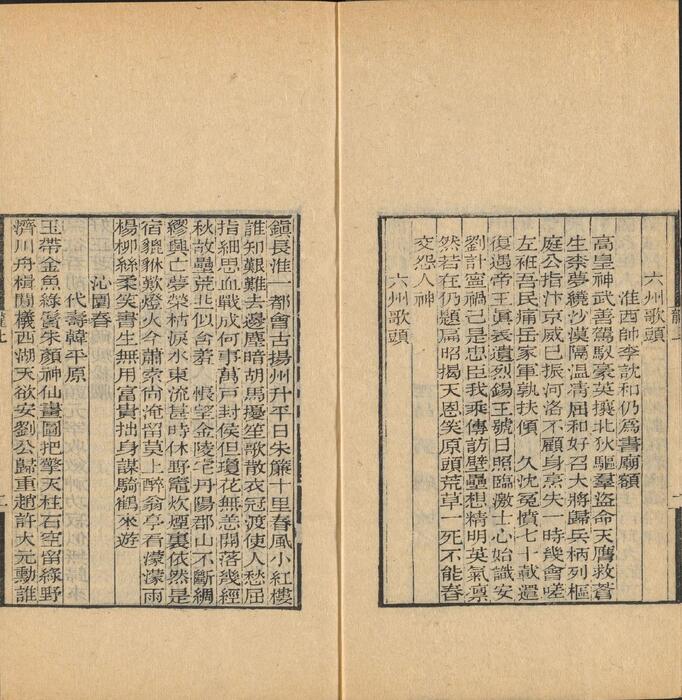 六州歌頭
淮西帥李訦和仍爲書廟額
高皇神武善駕馭豪英攘北狄驅羣盜命天膺救蒼
生柰夢繞沙漠隔温清屈和好召大將歸兵柄列樞
庭公指汴京威已振河洛不顧身烹失一時幾會嗟
左袵吾民痛岳家軍孰扶傾 久沈冤憤七十載還
復遇帝王眞義遺烈錫王號日照臨激士心始識安
劉計寧禍己是忠臣我乘傳訪壁壘想精明英氣禀
然若在仍題扁昭揭天恩笑原頭荒草一死不能春
交怨人神
六州歌頭
鎭長淮一都會古揚州升平日朱簾十里春風小紅樓
誰知艱難去邊塵暗胡馬擾笙歌散衣冠渡使人愁屈
指細思血戰成何事萬戸封侯但瓊花無恙開落幾經
秋故壘荒丘似含羞 悵望金陵宅丹陽郡山不斷綢
繆興亡夢榮枯淚水東流甚時休野竈炊煙裏依然是
宿貔貅歎燈火今蕭索尚淹留莫上醉翁亭看濛濛雨
楊栁絲柔笑書生無用富貴拙身謀騎鶴來遊
沁園春
代壽韓平原
玉帶金魚綠鬢朱顔神仙畫圖把擎天柱石空留綠野
濟川舟楫閒檥西湖天欲安劉公歸重趙許大元勳誰